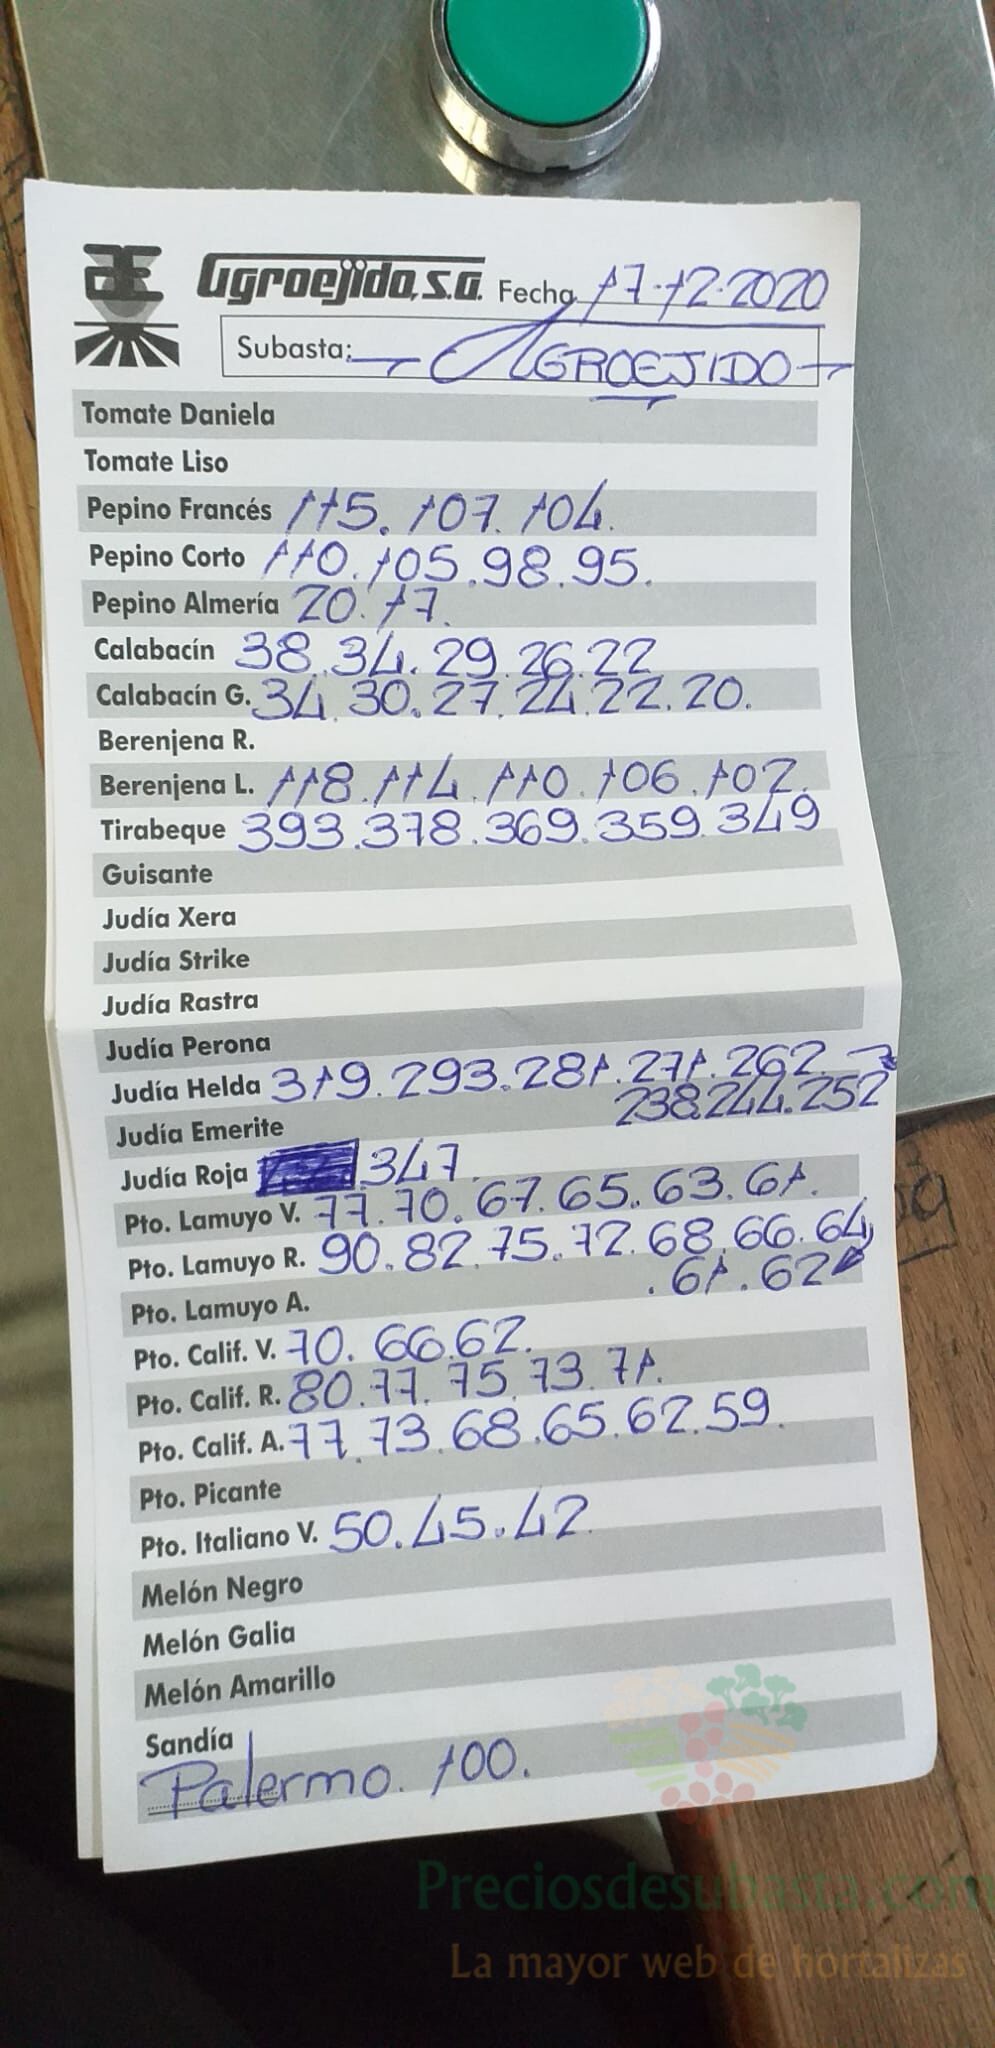 Agroejido, S.A. Fecha 17-12-2020
Subasta: AGROEJIDO
Tomate Daniela
Tomate Liso
Pepino Francés 115. 107. 104.
Pepino Corto 110. 105. 98. 95.
Pepino Almería 20. 17.
Calabacín 38. 34. 29. 26. 22
Calabacín G. 34. 30. 27. 24. 22. 20.
Berenjena R.
Berenjena L. 118. 114. 110. 106. 102.
Tirabeque 393. 378. 369. 359. 349
Guisante
Judía Xera
Judía Strike
Judía Rastra
Judía Perona
Judía Helda 319. 293. 281. 271. 262.
238. 244. 252
Judía Emerite
Judía Roja 347.
Pto. Lamuyo V. 77. 70. 67. 65. 63. 61.
Pto. Lamuyo R. 90. 82. 75. 72. 68. 66. 64
. 61. 62
Pto. Lamuyo A.
Pto. Calif. V. 70. 66. 62.
Pto. Calif. R. 80. 77. 75. 73. 71.
Pto. Calif. A. 77. 73. 68. 65. 62. 59.
Pto. Picante
Pto. Italiano V. 50. 45. 42.
Melón Negro
Melón Galia
Melón Amarillo
Sandía
Palermo. 100.
Preciosdesubasta.com
La mayor web de hortalizas